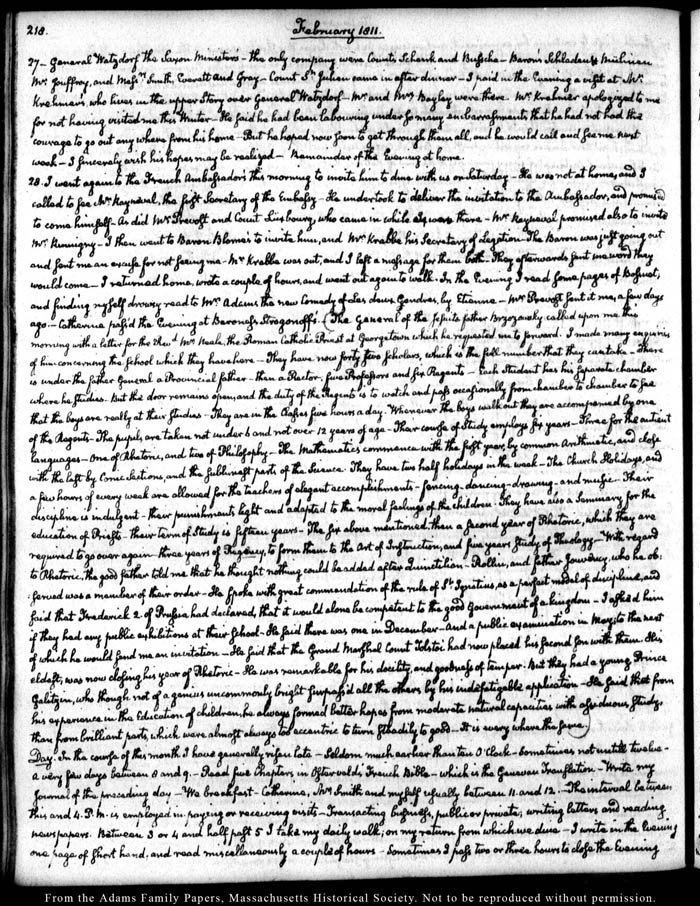 218.
February 1811.
27— General Watzdorf the Saxon Minister's— the only company were Counts Schenk and Bussche— Barons Schladen &
Mr Jouffroy, and Messrs Smith, Everett and Gray— Count St Julien came in after dinner— I paid in the Evening a visit at Mr
Krehmer's, who lives in the upper Story over General Watzdorf— Mr and Mrs Bayley were there. Mr Krehmer apologized to me
for not having visited me this Winter— He said he had been labouring under so many embarrassments that he had not had the
courage to go out any where from his home— But he hoped now soon to get through them all, and he would call and see me next
week— I sincerely wish his hopes may be realized— Remainder of the Evening at home.
28. I went again to the French Ambassador's this morning to invite him to dine with us on Saturday— He was not at home, and I
called to see Mr Raynaval, the first Secretary of the Embassy— He undertook to deliver the invitation to the Ambassador, and promised
to come himself— As did Mr Prevost and Count Luxbourg, who came in while I was there— Mr Rayneval promised also to invite
Mr Rumigny— I then went to Baron Blome's to invite him, and Mr Krabbe his Secretary of Legation— The Baron was just going out
and sent me an excuse for not seeing me— Mr Krabbe was out, and I left a message for them both. They afterwards sent me word they
would come— I returned home, wrote a couple of hours, and went out again to walk. In the Evening I read some pages of Bossuet,
and finding myself drowsy read to Mrs Adams the new Comedy of Les deux Gendres, by Etienne— Mr Prevost sent it me, a few days
ago— Catherine pass'd the Evening at Baroness Strogonoff's. (The General of the Jesuits father Brzozowsky called upon me this
morning with a letter for the Revd Mr Neale, the Roman Catholic Priest at Georgetown which he requested me to forward. I made many enquiries
of him concerning the School which they have here— They have now forty five scholars, which is the full number that they can take— There
is under the father General a Provincial father— then a Rector, five Professors and six Regents— Each Student has his separate chamber
where he studies. But the door remains open, and the duty of the Regents is to watch and pass occasionally from chamber to chamber to see
that the boys are really at their Studies— They are in the Classes five hours a day. Whenever the boys walk out they are accompanied by one
of the Regents— The pupils are taken not under 6 and not over 12 years of age— Their course of Study employs six years— Three for the antient
languages— One of Rhetoric, and two of Philosophy— The Mathematics commence with the first year, by common Arithmetic, and close
with the last by Conic Sections, and the sublimest parts of the Science. They have two half holidays in the week— The Church Holidays, and
a few hours of every week are allowed for the teachers of elegant accomplishments— fencing— dancing— drawing— and music— Their
discipline is indulgent— their punishments light and adapted to the moral feelings of the children— They have also a Seminary for the
education of Priests— Their term of Study is fifteen years— The six above mentioned— then a second year of Rhetoric, which they are
required to go over again— three years of Regency, to form them to the Art of Instruction, and five years Study of Theology— With regard
to Rhetoric, the good father told me that he thought nothing could be added after Quinctilian— Rollin, and father Jouvency, who he ob-
served was a member of their order— He spoke with great commendation of the rule of St Ignatius, as a perfect model of discipline, and
said that Frederick 2. of Prussia had declared, that it would alone be competent to the good Government of a kingdom— I asked him
if they had any public exhibitions at their School— He said there was one in December— and a public examination in May, to the next
of which he would send me an invitation— He said that the Grand Marshal Count Tolstoi had now placed his second son with them. His
eldest, was now closing his year of Rhetoric— He was remarkable for his docility, and goodness of temper. But they had a young Prince
Galitzin, who though not of a genius uncommonly bright surpass'd all the others by his indefatigable application— He said that from
his experience in the Education of children, he always formed better hopes from moderate natural capacities with assiduous Study,
than from brilliant parts, which were almost always too eccentric to turn steadily to good— It is every where the same.)
Day. In the course of this month I have generally risen late— Seldom much earlier than ten O'Clock— Sometimes not untill twelve—
a very few days between 8 and 9.— Read five Chapters in Ostervald's French Bible— which is the Genevan Translation— Write my
Journal of the preceding day— We breakfast— Catherine, Mr Smith and myself usually between 11 and 12.— The interval between
this and 4. P.M. is employed in paying or receiving visits— Transacting business, public or private; writing letters and reading
newspapers. Between 3 or 4 and half past 5 I take my daily walk; on my return from which we dine— I write in the Evening
one page of Short hand, and read miscellaneously a couple of hours— Sometimes I pass two or three hours to close the Evening
From the Adams Family Papers, Massachusetts Historical Society. Not to be reproduced without permission.